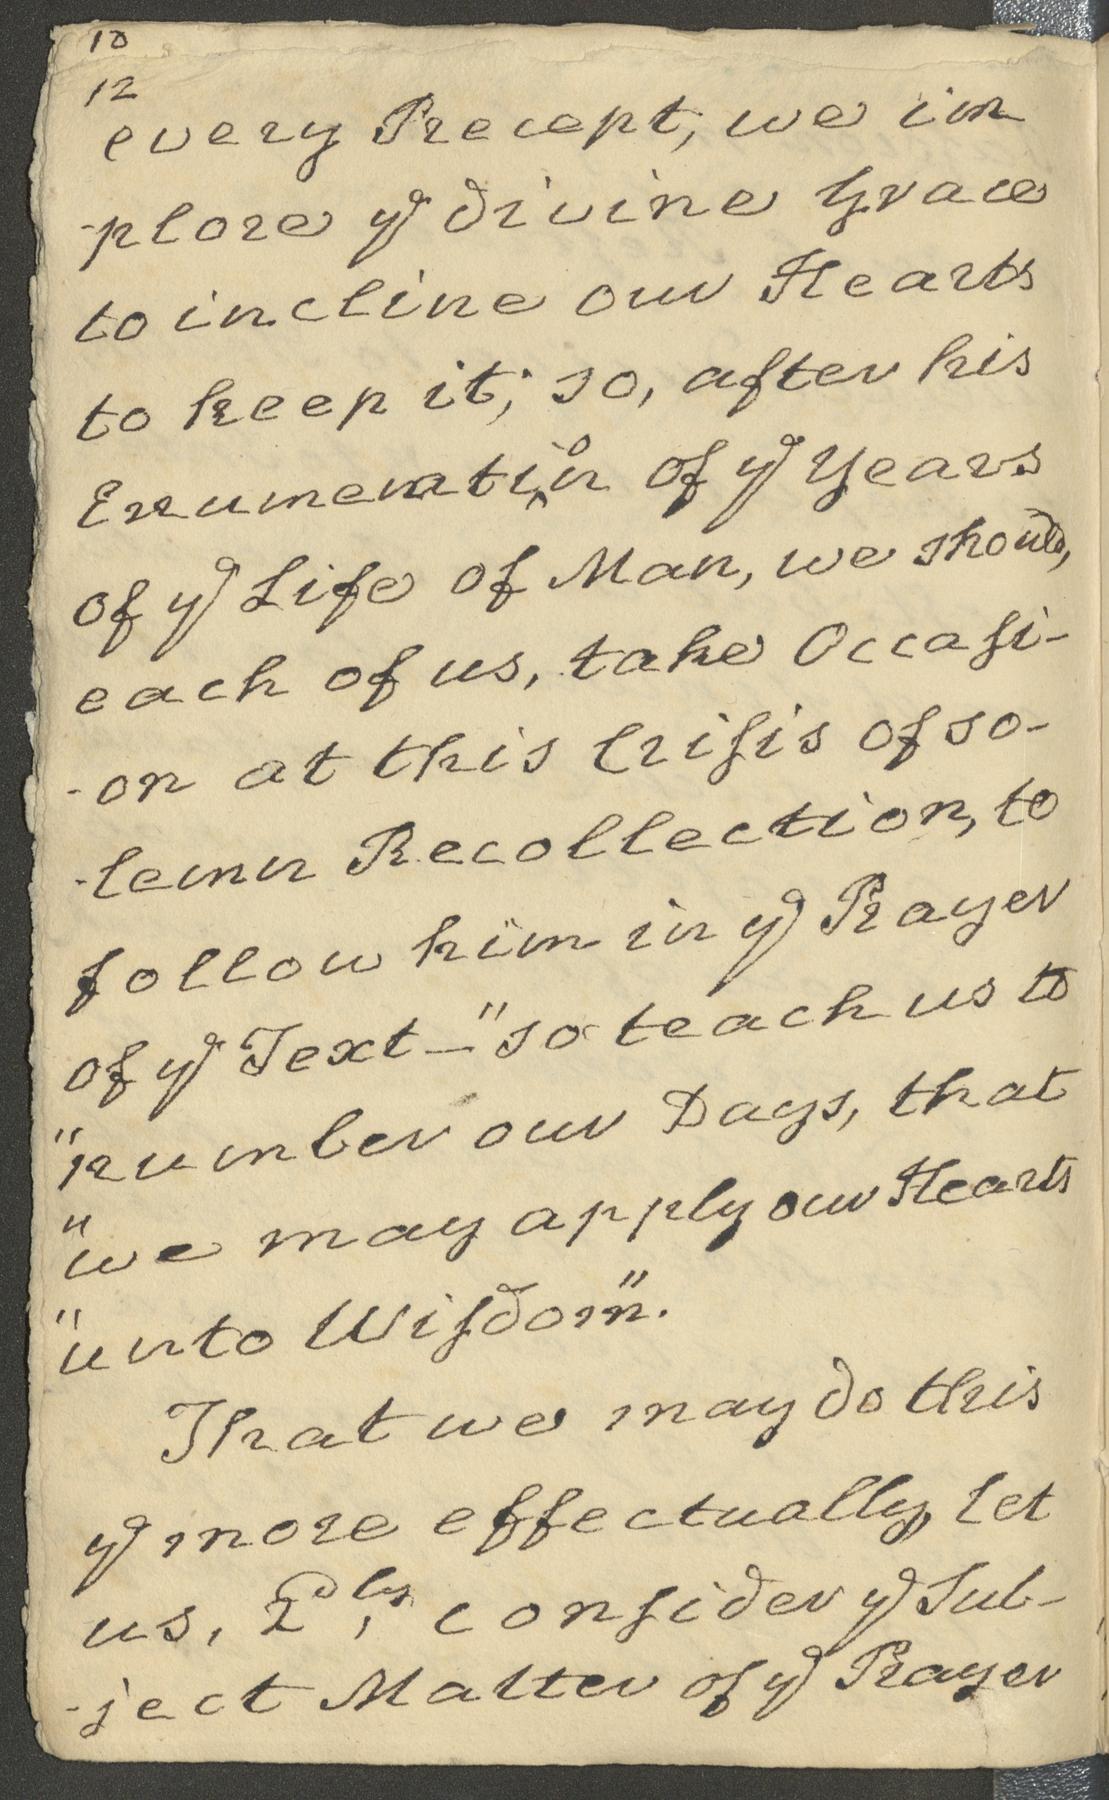 10
12
every Precept, we im
-plore yͤ divine Grace
to incline our Hearts
to keep it; so, after his
Enumeration of yͤ Years
of yͤ Life of Man, we should,
each of us, take Occaſi-
-on at this Criſis of so-
-lemn Recollection, to
follow him in yͤ Prayer
of yͤ Text—"so teach us to
"number our Days, that
"we may apply our Hearts
"unto Wiſdom".
That we may do this
yͤ more effectually, let
us, 2dly, conſider yͤ Sub-
-ject Matter of yͤ Prayer